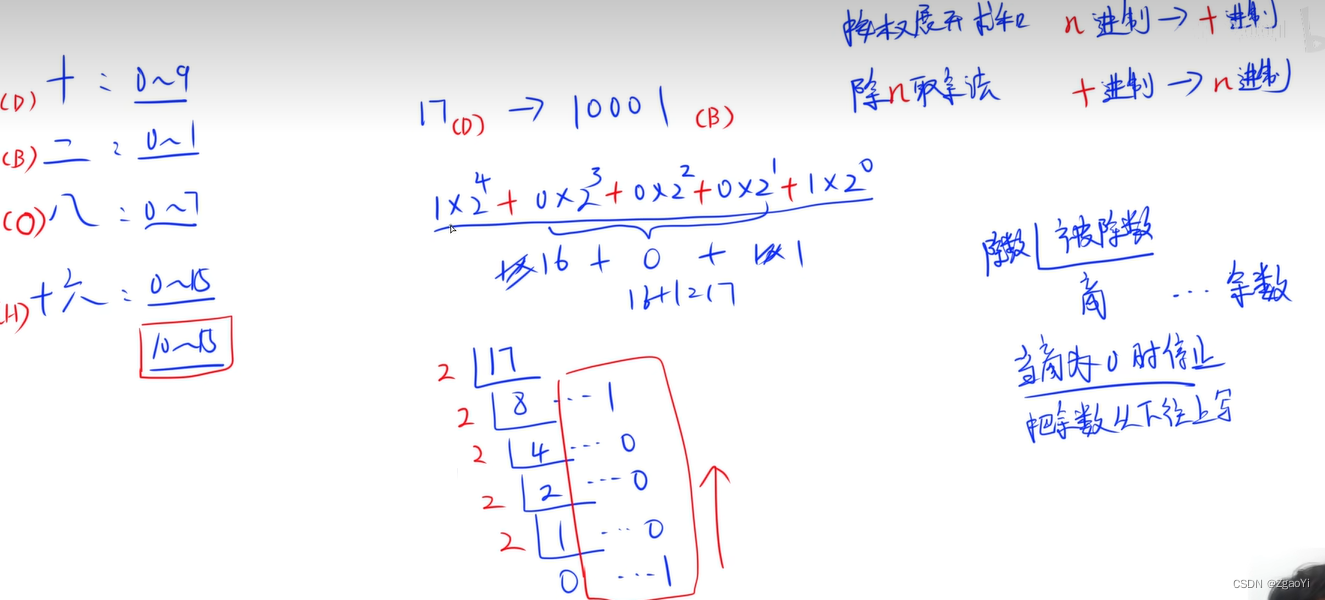 按权展开求和 n进制→十进制
除n取余法 十进制→n进制
(D) 十：0~9
(B) 二：0~1
(O) 八：0~7
(H) 十六：0~15
10~15
17(D) → 10001 (B)
1×2^4 + 0×2^3 + 0×2^2 + 0×2^1 + 1×2^0
16 + 0 + 1
16+1=17
2 17
2 8 ··· 1
2 4 ··· 0
2 2 ··· 0
2 1 ··· 0
0 ··· 1
除数 被除数
商 ··· 余数
当商为0时停止
把余数从下往上写
CSDN @ZgaoYi